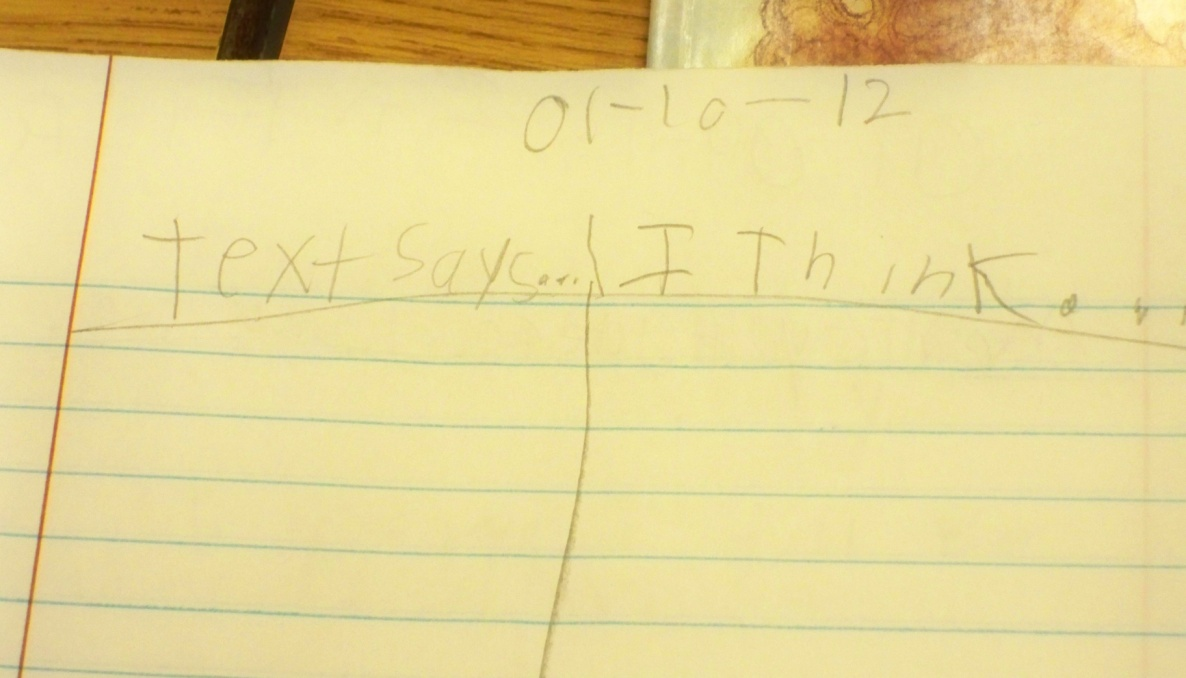 01-10-12
Text says... I Think...